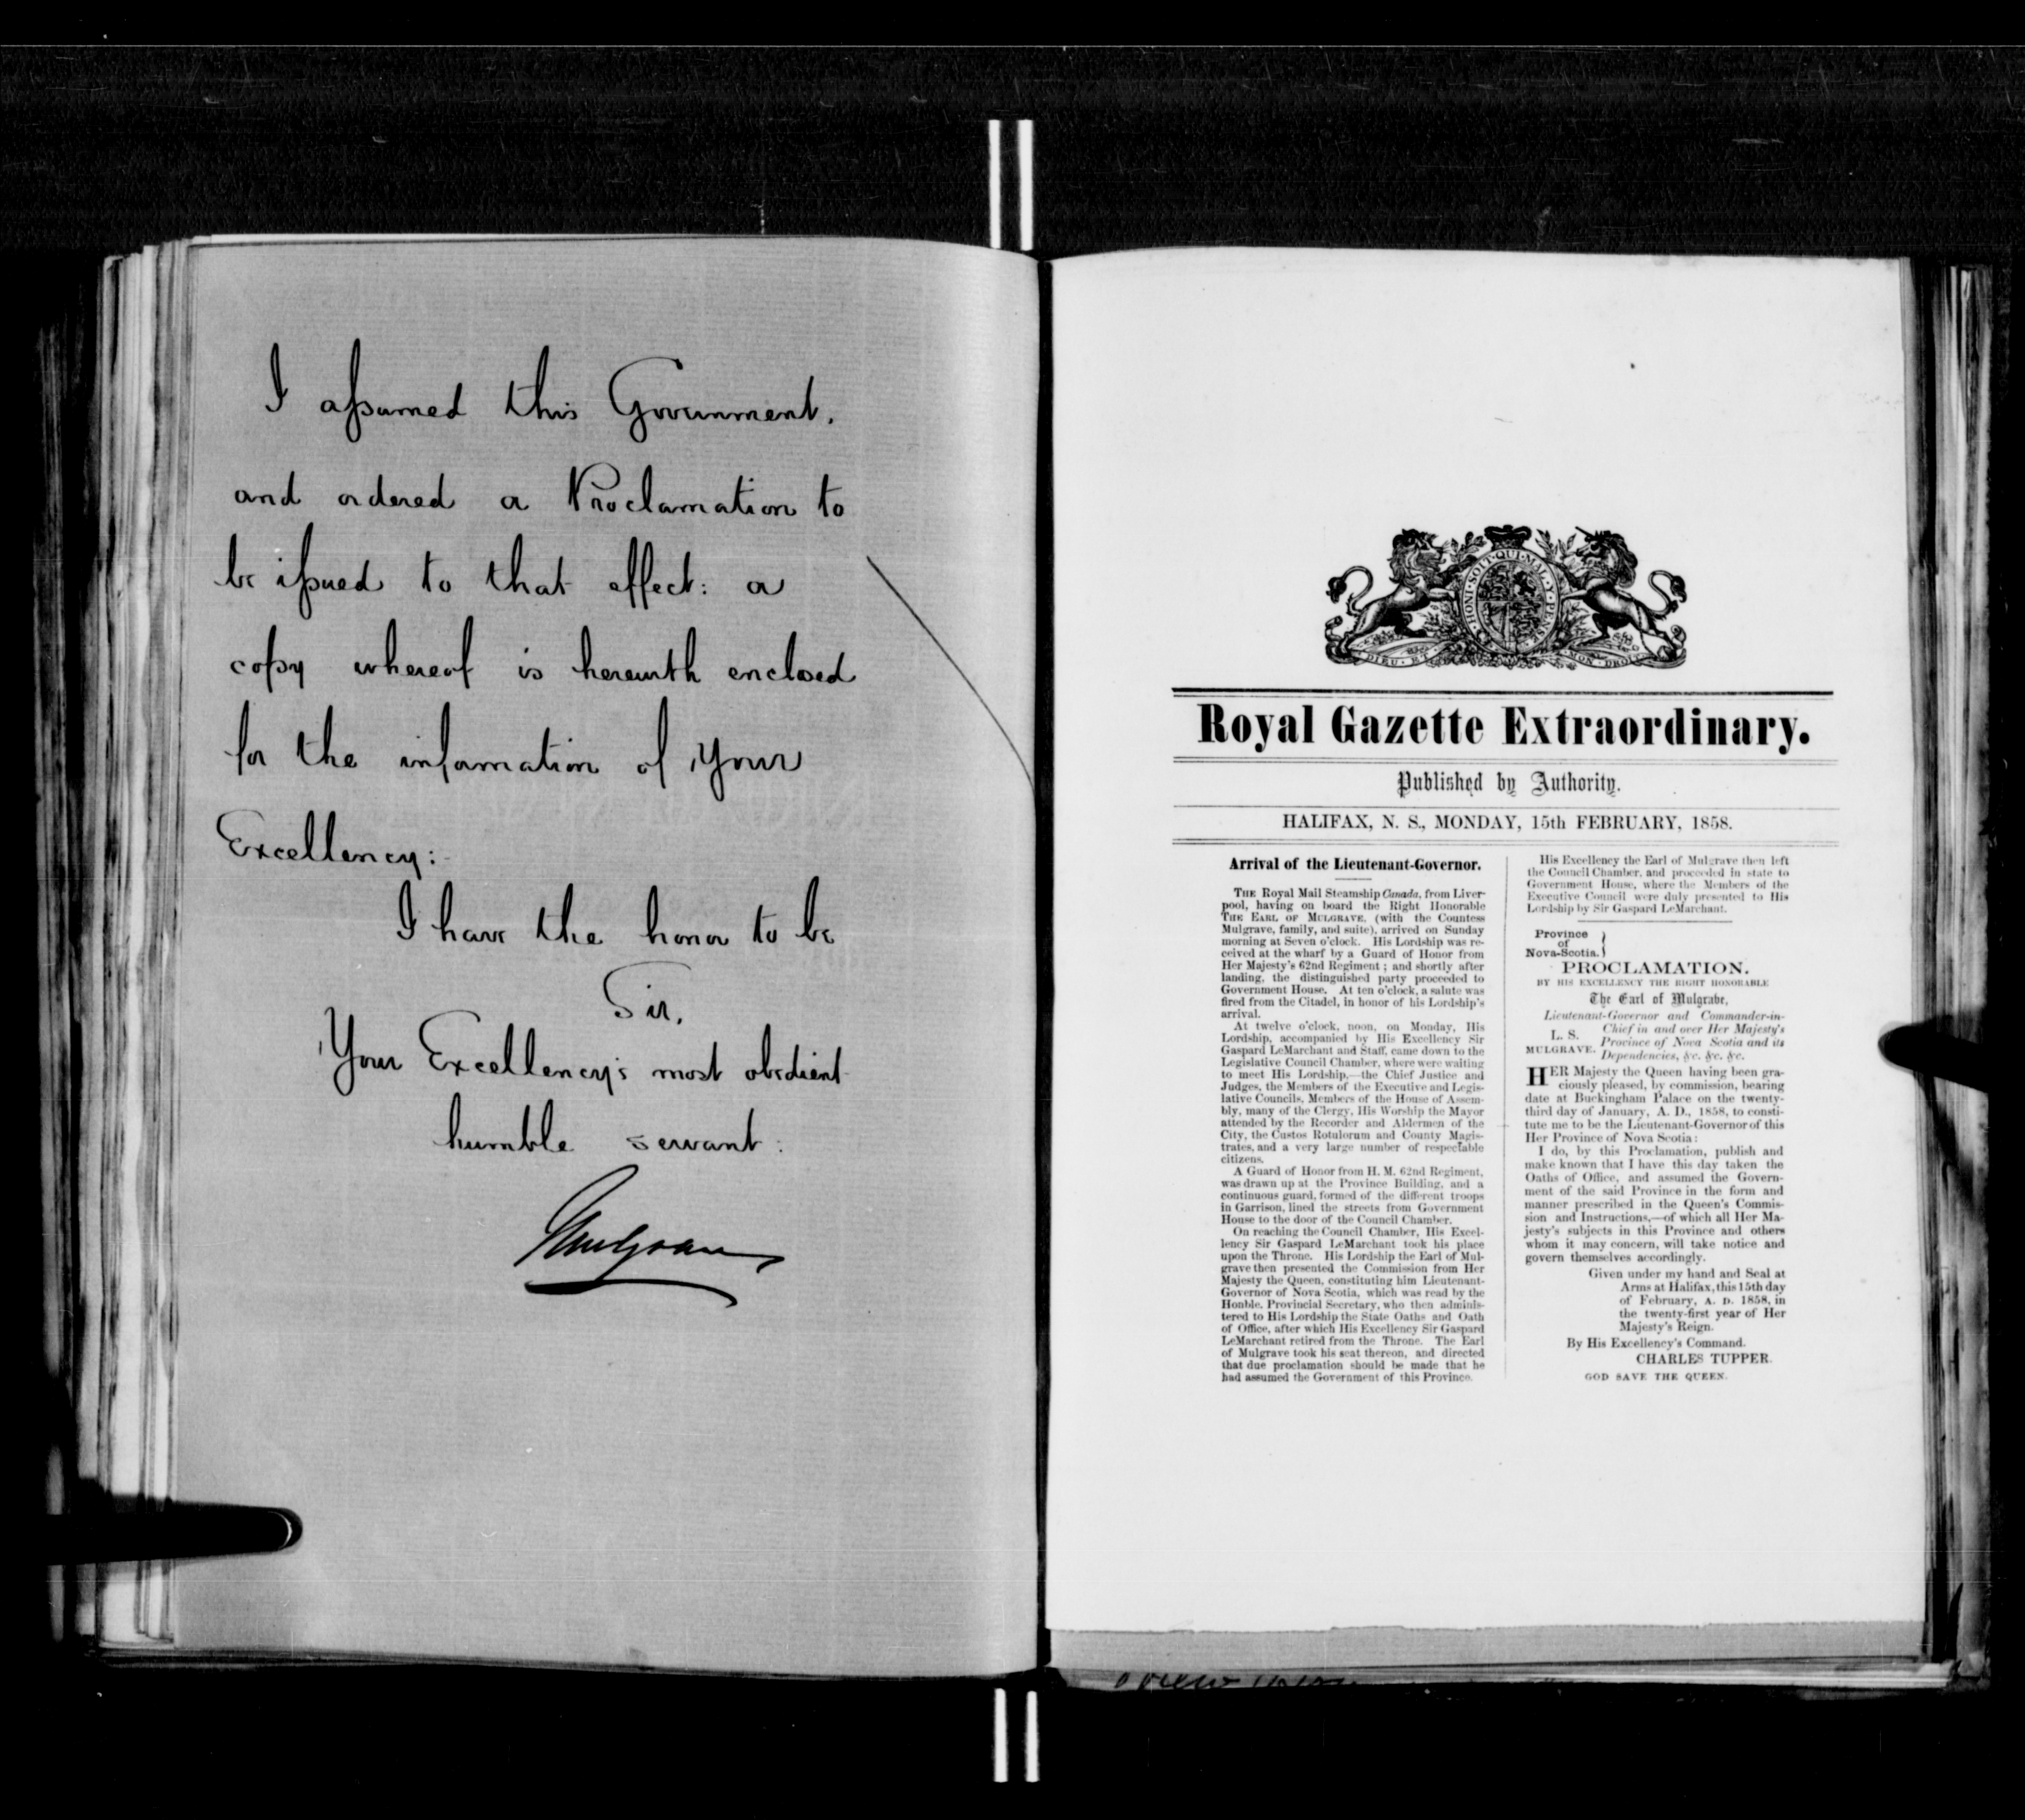 I assumed this Government,
and ordered a Proclamation to
be issued to that effect: a
copy whereof is herewith enclosed
for the information of Your
Excellency:
I have the honor to be
Sir,
Your Excellency's most obedient
humble servant:
Mulgrave
HONI·SOIT·QUI·MAL·Y·PENSE
DIEU·ET MON·DROIT
Royal Gazette Extraordinary.
Published by Authority.
HALIFAX, N. S., MONDAY, 15th FEBRUARY, 1858.
Arrival of the Lieutenant-Governor.
THE Royal Mail Steamship Canada, from Liver-
pool, having on board the Right Honorable
THE EARL OF MULGRAVE, (with the Countess
Mulgrave, family, and suite), arrived on Sunday
morning at Seven o'clock. His Lordship was re-
ceived at the wharf by a Guard of Honor from
Her Majesty's 62nd Regiment; and shortly after
landing, the distinguished party proceeded to
Government House. At ten o'clock, a salute was
fired from the Citadel, in honor of his Lordship's
arrival.
At twelve o'clock, noon, on Monday, His
Lordship, accompanied by His Excellency Sir
Gaspard LeMarchant and Staff, came down to the
Legislative Council Chamber, where were waiting
to meet His Lordship,—the Chief Justice and
Judges, the Members of the Executive and Legis-
lative Councils, Members of the House of Assem-
bly, many of the Clergy, His Worship the Mayor
attended by the Recorder and Aldermen of the
City, the Custos Rotulorum and County Magis-
trates, and a very large number of respectable
citizens.
A Guard of Honor from H. M. 62nd Regiment,
was drawn up at the Province Building, and a
continuous guard, formed of the different troops
in Garrison, lined the streets from Government
House to the door of the Council Chamber.
On reaching the Council Chamber, His Excel-
lency Sir Gaspard LeMarchant took his place
upon the Throne. His Lordship the Earl of Mul-
grave then presented the Commission from Her
Majesty the Queen, constituting him Lieutenant-
Governor of Nova Scotia, which was read by the
Honble. Provincial Secretary, who then adminis-
tered to His Lordship the State Oaths and Oath
of Office, after which His Excellency Sir Gaspard
LeMarchant retired from the Throne. The Earl
of Mulgrave took his seat thereon, and directed
that due proclamation should be made that he
had assumed the Government of this Province.
His Excellency the Earl of Mulgrave then left
the Council Chamber, and proceeded in state to
Government House, where the Members of the
Executive Council were duly presented to His
Lordship by Sir Gaspard LeMarchant.
Province
of
Nova-Scotia.
PROCLAMATION.
BY HIS EXCELLENCY THE RIGHT HONORABLE
The Earl of Mulgrave,
Lieutenant-Governor and Commander-in-
Chief in and over Her Majesty's
L. S.
Province of Nova Scotia and its
MULGRAVE.
Dependencies, &c. &c. &c.
HER Majesty the Queen having been gra-
ciously pleased, by commission, bearing
date at Buckingham Palace on the twenty-
third day of January, A. D., 1858, to consti-
tute me to be the Lieutenant-Governor of this
Her Province of Nova Scotia:
I do, by this Proclamation, publish and
make known that I have this day taken the
Oaths of Office, and assumed the Govern-
ment of the said Province in the form and
manner prescribed in the Queen's Commis-
sion and Instructions,—of which all Her Ma-
jesty's subjects in this Province and others
whom it may concern, will take notice and
govern themselves accordingly.
Given under my hand and Seal at
Arms at Halifax, this 15th day
of February, A. D. 1858, in
the twenty-first year of Her
Majesty's Reign.
By His Excellency's Command.
CHARLES TUPPER.
GOD SAVE THE QUEEN.